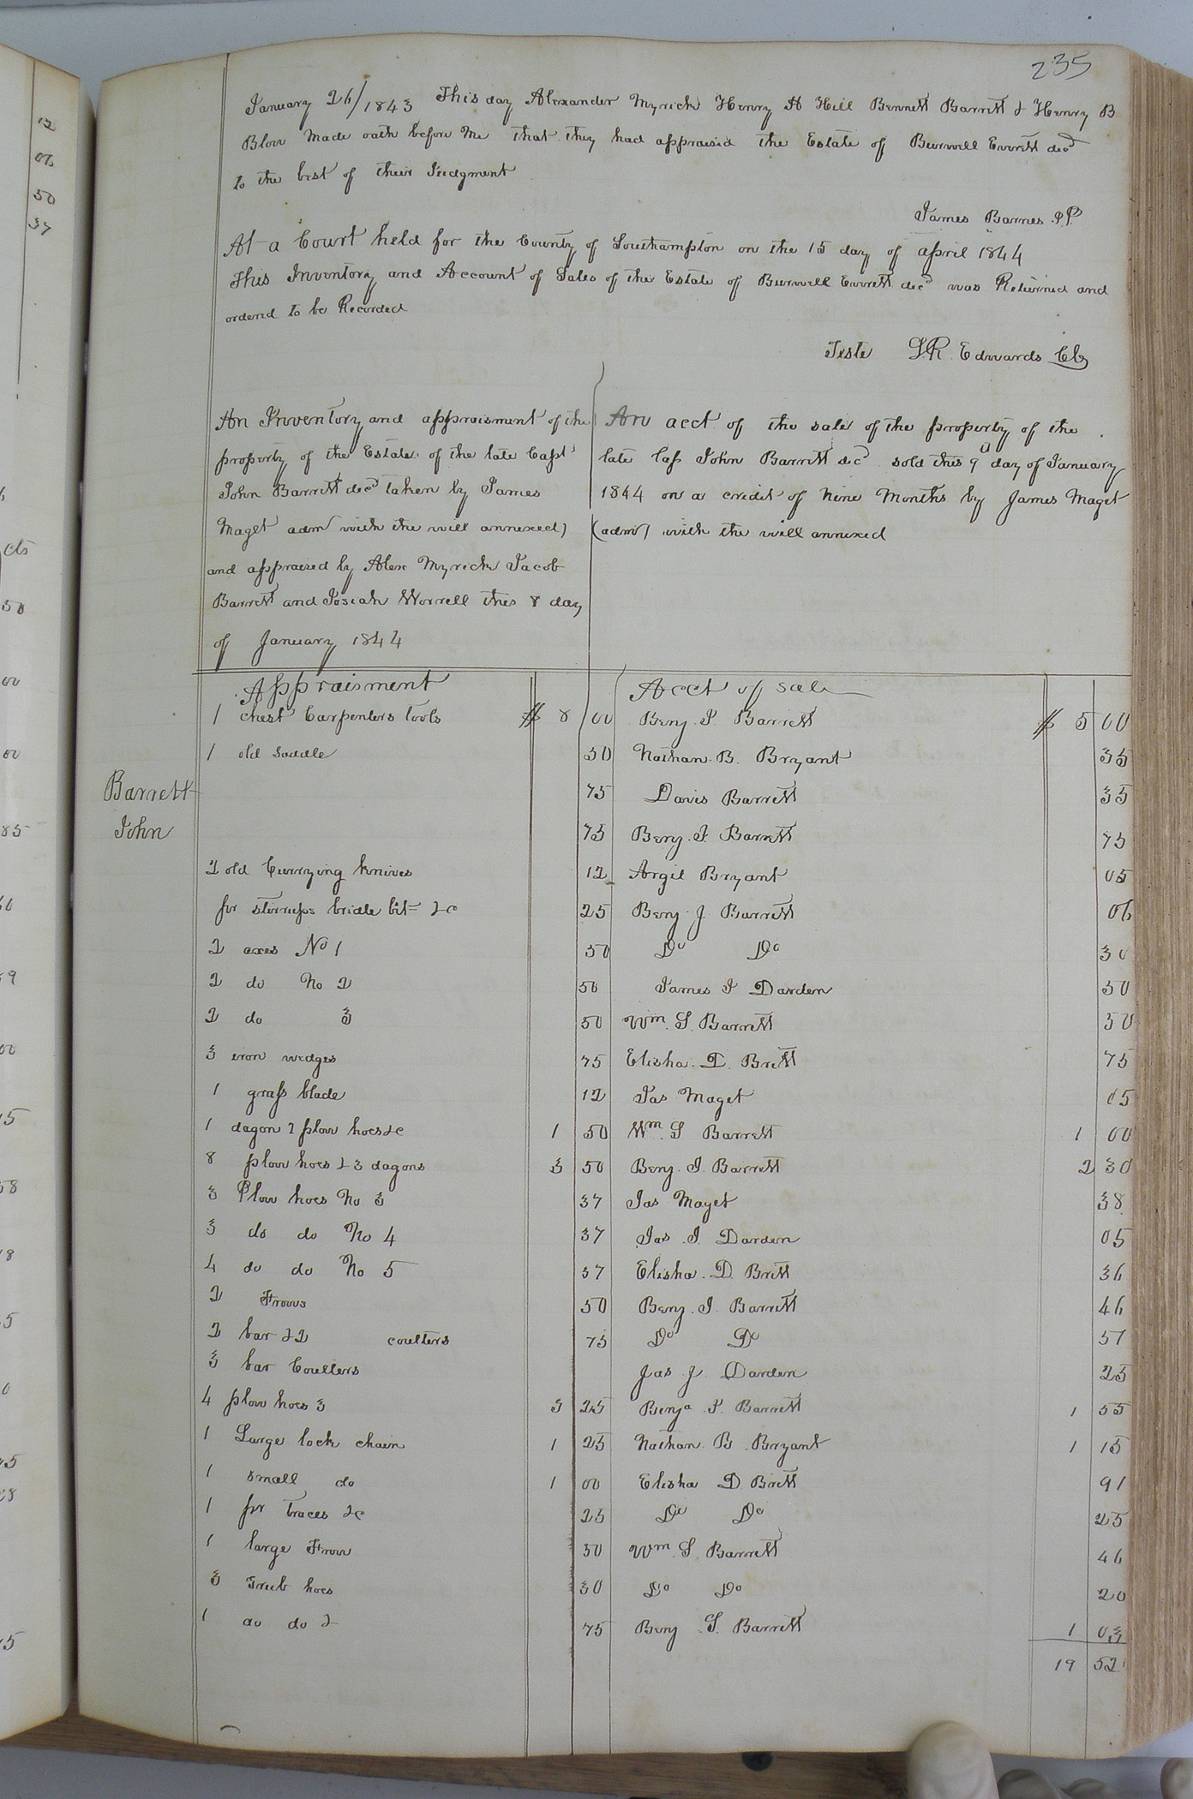 235
January 26/1843 This day Alexander Myrick Henry A Hill Bennett Barrett & Henry B
Blow Made oath before Me that they had appraisd the Estate of Burwell Everett decd
to the best of their Judgment
James Barnes J.P.
At a Court held for the County of Southampton on the 15 day of april 1844
This Inventory and Account of Sales of the Estate of Burwell Everett decd was Returned and
orderd to be Recorded
Teste L R Edwards Clk
An Inventory and appraisment of the
property of the Estate of the late Capt
John Barrett decd taken by James
Maget admr with the will annexed)
and appraised by Alex Myrick Jacob
Barrett and Josiah Worrell this 8 day
of January 1844
An acct of the sale of the property of the
late Cap John Barrett dec sold this 9 day of January
1844 on a credit of Nine Months by James Maget
(admr) with the will annexed
Barrett
John
Appraisment Acct of sale
1 chest Carpenters tools $ 8 00 Benj. J. Barrett $ 5 00
1 old saddle 50 Nathan. B. Bryant 35
75 Davis Barrett 35
75 Benj. J. Barrett 75
2 old Currying knives 12 Argil Bryant 05
pr stirrups bridle bit &c 25 Benj J Barrett 06
2 axes No 1 50 Do Do 30
2 do No 2 50 James J Darden 50
2 do 3 50 Wm. S. Barrett 50
3 iron wedges 75 Elisha. D. Brett 75
1 grass blade 12 Jas Maget 05
1 dagon 2 plow hoes &c 1 50 Wm. S Barrett 1 00
8 plow hoes & 3 dagons 3 50 Benj. J. Barrett 2 30
3 Plow hoes No 3 37 Jas Maget 38
3 do do No 4 37 Jas. J Darden 05
4 do do No 5 37 Elisha. D. Brett 36
2 Frows 50 Benj. J. Barrett 46
2 bar & 2 coulters 75 Do Do 57
3 bar Coulters Jas J Darden 25
4 plow hoes 3 3 25 Benja. J. Barrett 1 55
1 Large lock chain 1 25 Nathan. B. Bryant 1 15
1 small do 1 00 Elisha D Brett 91
1 pr traces &c 25 Do Do 25
1 large Frow 50 Wm. S. Barrett 46
3 Grub hoes 30 Do Do 20
1 do do 2 75 Benj J. Barrett 1 03
19 52